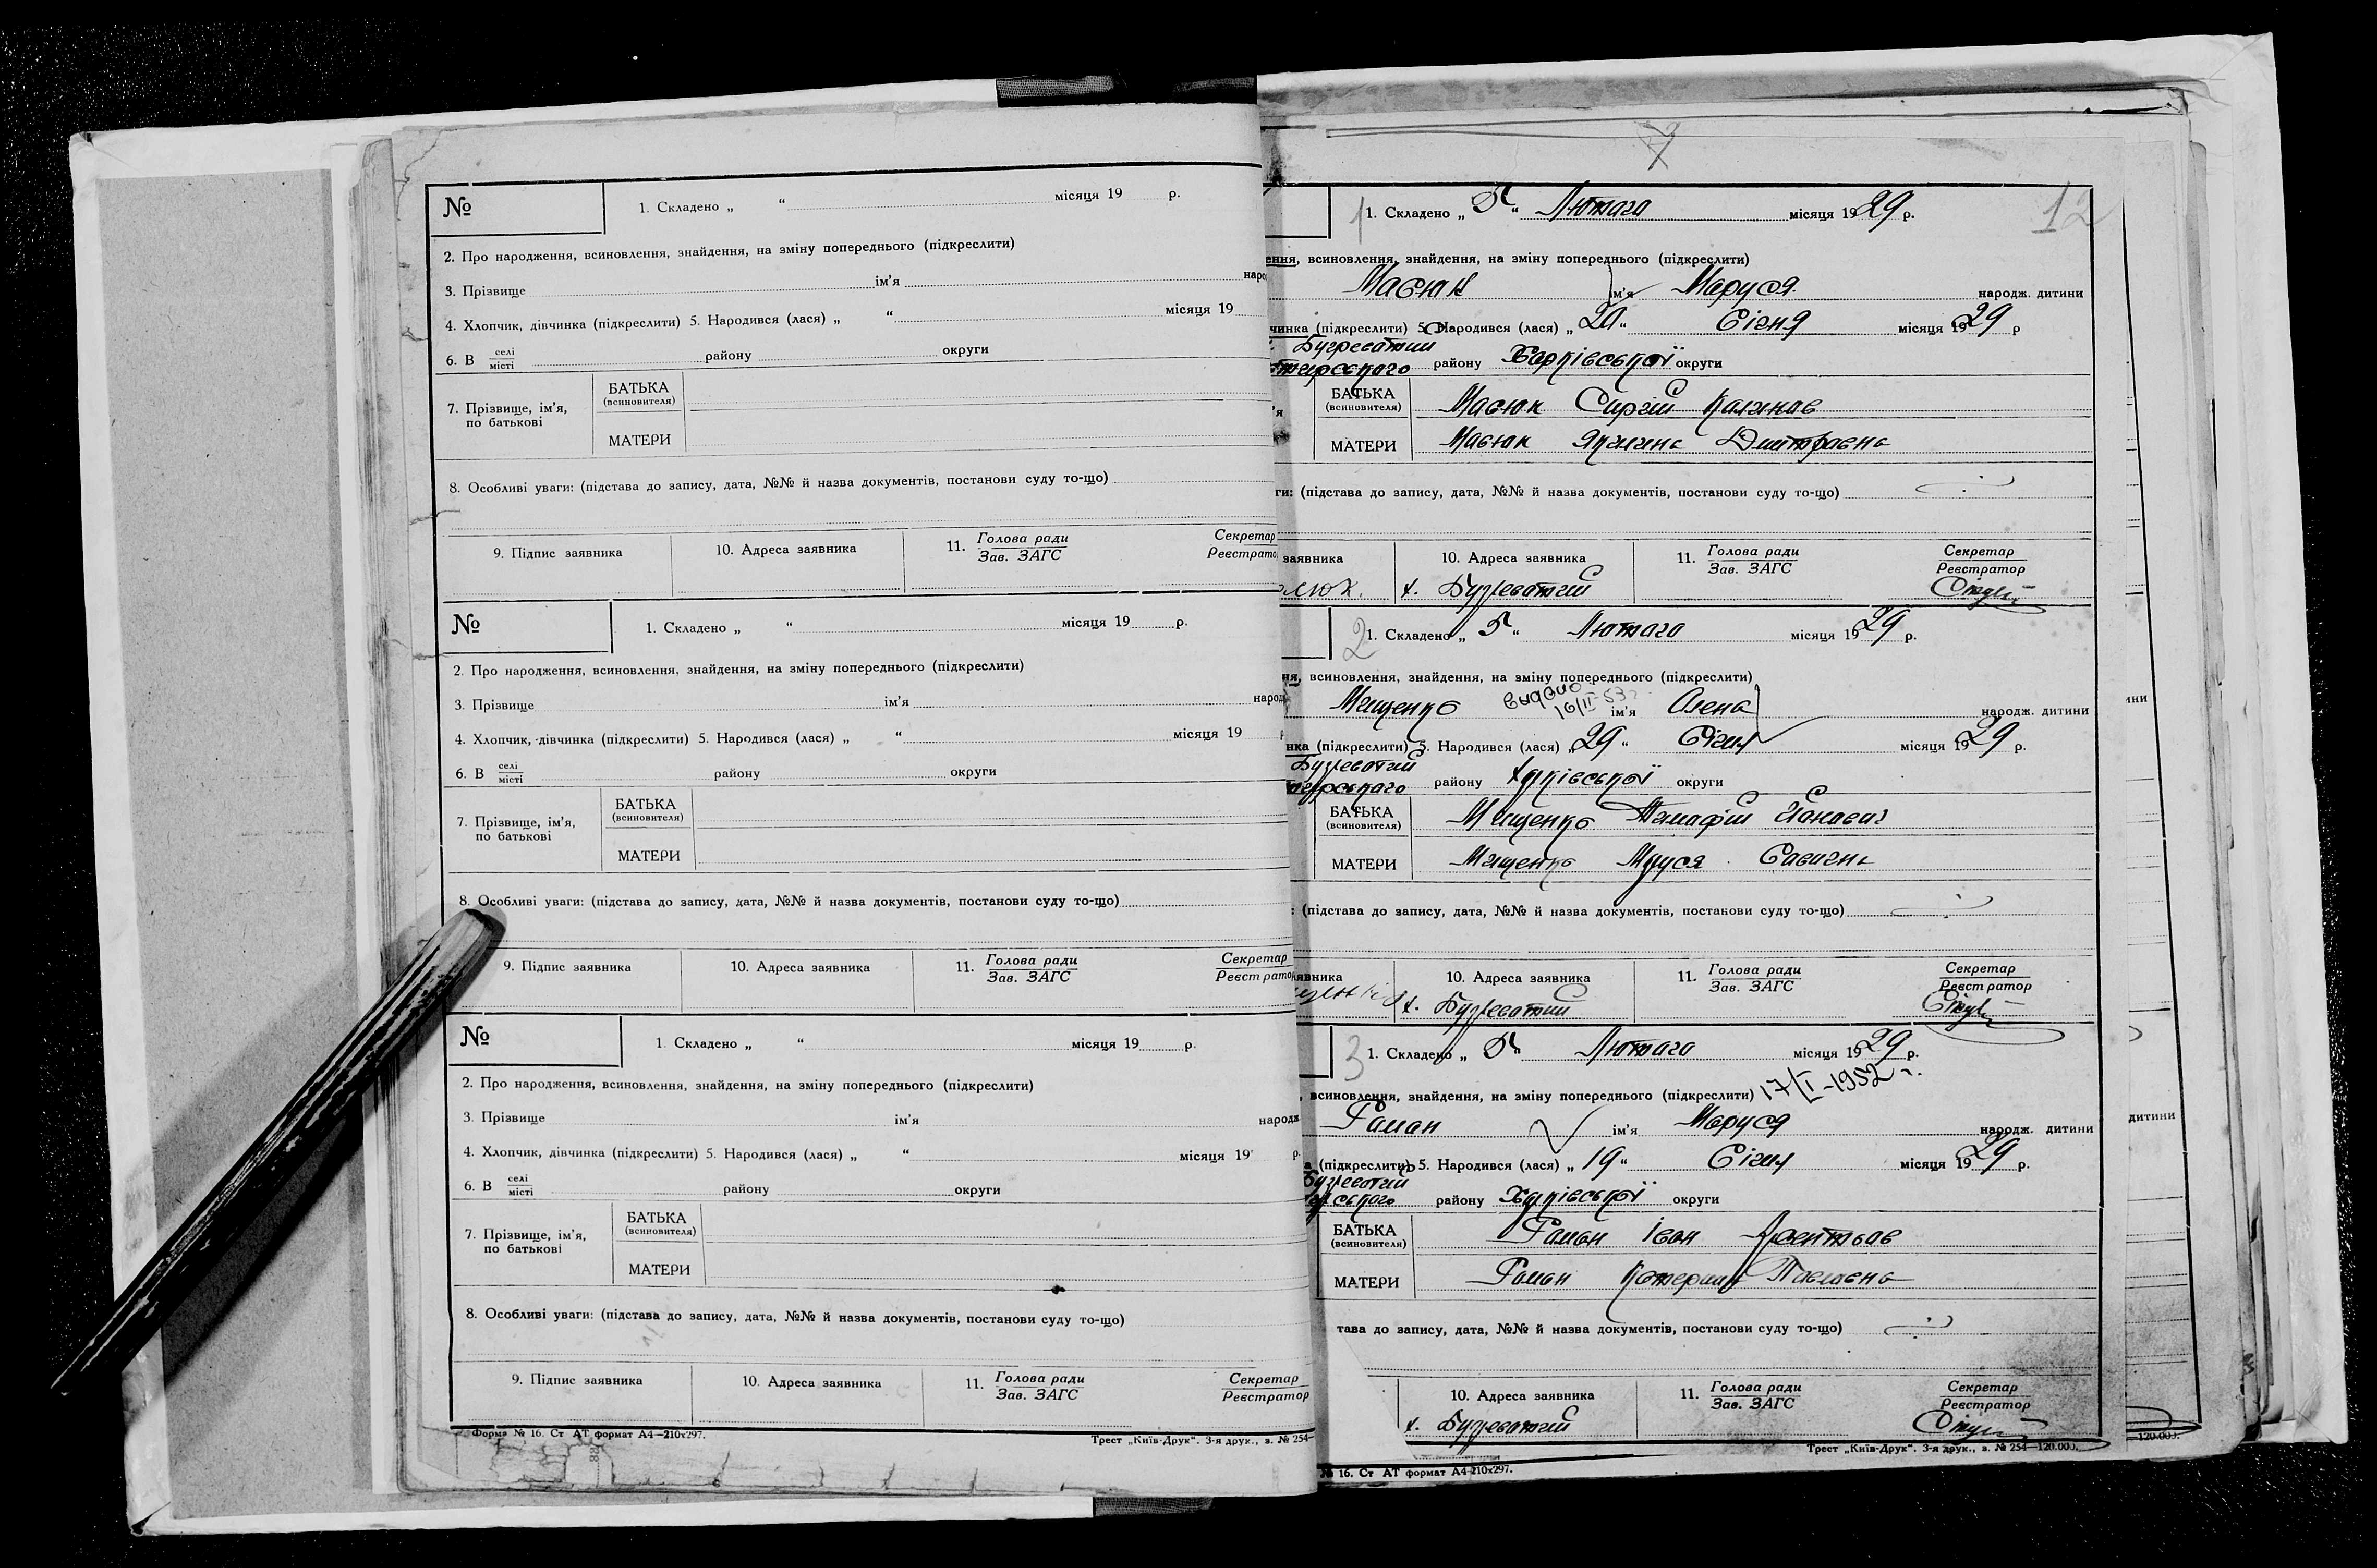 №
1. Складено „ “ місяця 19 р.
2. Про народження, всиновлення, знайдення, на зміну попереднього (підкреслити)
3. Прізвище ім’я наро
4. Хлопчик, дівчинка (підкреслити) 5. Народився (лася) „ “ місяця 19
6. В селі місті району округи
7. Прізвище, ім’я, по батькові
БАТЬКА (всиновителя)
МАТЕРИ
8. Особливі уваги: (підстава до запису, дата, №№ й назва документів, постанови суду то-що)
9. Підпис заявника 10. Адреса заявника 11. Голова ради Секретар
Зав. ЗАГС Реєстрато
№
1. Складено „ “ місяця 19 р.
2. Про народження, всиновлення, знайдення, на зміну попереднього (підкреслити)
3. Прізвище ім’я народ
4. Хлопчик, дівчинка (підкреслити) 5. Народився (лася) „ “ місяця 19
6. В селі місті району округи
7. Прізвище, ім’я, по батькові
БАТЬКА (всиновителя)
МАТЕРИ
8. Особливі уваги: (підстава до запису, дата, №№ й назва документів, постанови суду то-що)
9. Підпис заявника 10. Адреса заявника 11. Голова ради Секретар
Зав. ЗАГС Реєстрато
№
1. Складено „ “ місяця 19 р.
2. Про народження, всиновлення, знайдення, на зміну попереднього (підкреслити)
3. Прізвище ім’я народж
4. Хлопчик, дівчинка (підкреслити) 5. Народився (лася) „ “ місяця 19 р.
6. В селі місті району округи
7. Прізвище, ім’я, по батькові
БАТЬКА (всиновителя)
МАТЕРИ
8. Особливі уваги: (підстава до запису, дата, №№ й назва документів, постанови суду то-що)
9. Підпис заявника 10. Адреса заявника 11. Голова ради Секретар
Зав. ЗАГС Реєстратор
Форма № 16. Ст АТ формат А4—210x297. Трест „Київ-Друк“. 3-я друк., з. № 254—
12
1 1. Складено „ 5 “ Лютого місяця 1929 р.
ення, всиновлення, знайдення, на зміну попереднього (підкреслити)
ім’я Маруся народж. дитини
чинка (підкреслити) 5. Народився (лася) „ 20 “ Січня місяця 1929 р
району Харківської округи
БАТЬКА (всиновителя)
МАТЕРИ
ги: (підстава до запису, дата, №№ й назва документів, постанови суду то-що)
заявника 10. Адреса заявника 11. Голова ради Секретар
Зав. ЗАГС Реєстратор
х.
2 1. Складено „ 5 “ Лютого місяця 1929 р.
ня, всиновлення, знайдення, на зміну попереднього (підкреслити)
Мищенко выдано 16/II-53 ім’я Олена народж. дитини
нка (підкреслити) 5. Народився (лася) „ 29 “ Січня місяця 1929 р.
району Харківської округи
БАТЬКА (всиновителя) Мищенко
МАТЕРИ Мищенко Маруся
: (підстава до запису, дата, №№ й назва документів, постанови суду то-що)
явника 10. Адреса заявника 11. Голова ради Секретар
Зав. ЗАГС Реєстратор
х.
3 1. Складено „ 5 “ Лютого місяця 1929 р.
, всиновлення, знайдення, на зміну попереднього (підкреслити) 17/I-1952 г.
Роман ім’я Маруся народж. дитини
а (підкреслити) 5. Народився (лася) „ 19 “ Січня місяця 1929 р.
району Харківської округи
БАТЬКА (всиновителя) Роман Іван
МАТЕРИ Роман Катерина Павловна
тава до запису, дата, №№ й назва документів, постанови суду то-що)
10. Адреса заявника 11. Голова ради Секретар
Зав. ЗАГС Реєстратор
х.
Трест „Київ-Друк“. 3-я друк., з. № 254—120.000.
№ 16. Ст АТ формат А4-210x297.
ини
дитини
—120.000.